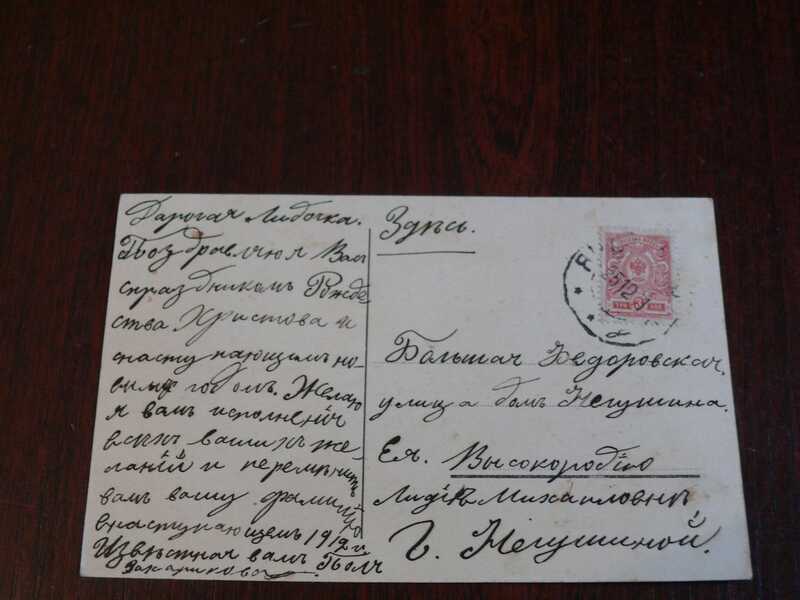 Дарогая Любочка.
Поздравляюя Вас
спраздникомъ Рожде
ства Христова и
наступающимъ но-
вымъ годомъ. Желаю
я вамъ исполненія
всехъ вашихъ же-
ланій и переменить
вамъ вашу фамилію
внаступающемъ 1912 г.
Извѣстная вамъ
Здѣсь.
25 12
ТРИ 3 КОП
Большая Ѳедоровская
улица домъ Нечушина.
Ея. Высокородію
Лидіѣ Михаиловнѣ
Г. Нечушиной.